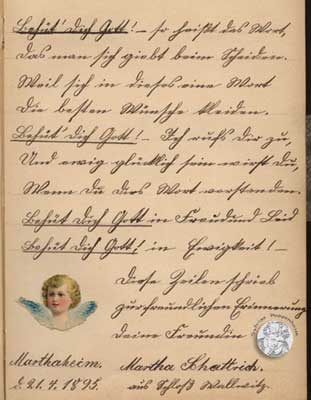 Behüt' Dich Gott! – so heißt das Wort,
das man sich giebt beim Scheiden.
Weil sich in dieses eine Wort
Die besten Wünsche kleiden.
Behüt' Dich Gott! – Ich rufs Dir zu,
Und ewig glücklich sein wirst Du,
Wenn Du dies Wort verstanden.
Behüt Dich Gott in Freud und Leid
Behüt Dich Gott! in Ewigkeit! –
Diese Zeilen schrieb
zur freundlichen Erinnerung
deine Freundin
Marthaheim. Martha Schattrich.
d. 21.4.1895. aus Schloß Wallwitz.